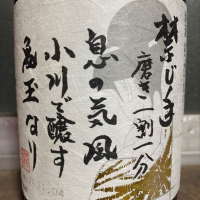 禁じ手
磨き一割一分
息の気風
小川で醸す
玉なり